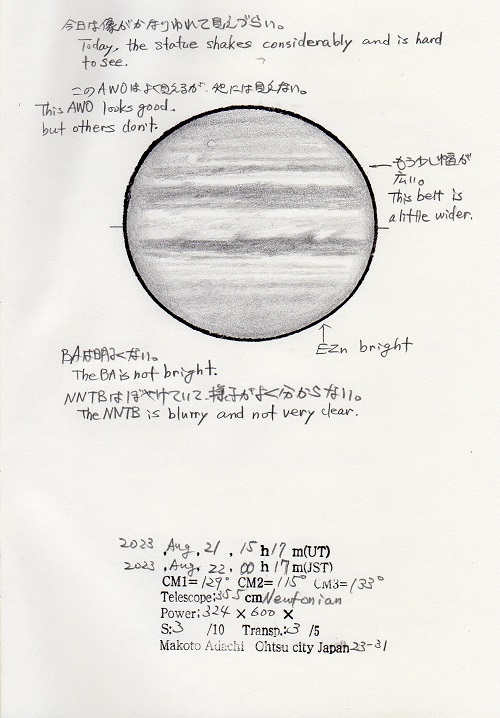 今日は像がかなりゆれて見えづらい。
Today, the statue shakes considerably and is hard
to see.
このAWOはよく見えるが、他には見えない。
This AWO looks good.
but others don't.
もう少し幅が
広い。
This belt is
a little wider.
EZn bright
BAは明るくない。
The BA is not bright.
NNTBはぼやけていて、様子がよく分からない。
The NNTB is blurry and not very clear.
2023, Aug, 21, 15 h 17 m(UT)
2023, Aug, 22, 00 h 17 m(JST)
CM1=129° CM2=115° CM3=133°
Telescope; 355 cm Newtonian
Power; 324 × 600 ×
S:3 /10 Transp.:3 /5
Makoto Adachi Ohtsu city Japan 23-31